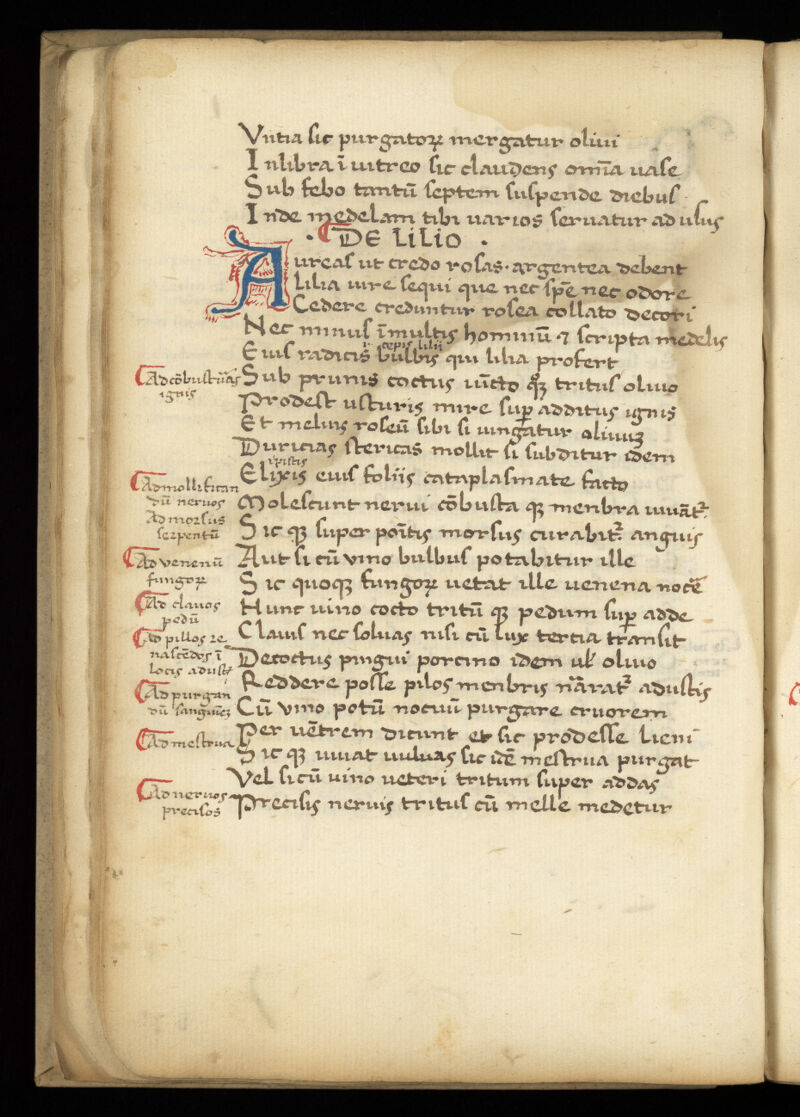 Vntia sic purgatoꝝ mergatur oliui
Inlibra ĩ uitreo sic claudens om̃ia uase
Sub febo tantũ septem suspende diebus
Inde medelam tibi uarios seruatur ad usus
De Lilio
Aureas ut credo rosas argentea debent
Lilia iure sequi que nec spẽ nec odore
Cedere creduntur rosea collato decori
Nec minus ĩmultis hominũ ⁊ scripta medelis
i. cepis lilii
Eius radicis bulbis qui lilia profert
Ad cõbustiões ignis
Sub prunis coctus iũcto qꝫ tritus oliuo
Prodest usturis mire suꝑ additus ignis
Et melius roseũ sibi si iungatur oliuuꝫ
Duricias stericas mollit si subditur idem
i pistis
Elixis eius foliis cataplasmate facto
Ad mollifican
dũ neruos
Molescunt nerui cõbusta qꝫ menbra iuuãt᷑
Ad morsus
serpentũ
Sic qꝫ super põitis morsus curabit᷑ anguis
Ad venenũ
fungoꝝ
Aut si cũ vino bulbus potabitur ille
Sic quoqꝫ fungoꝝ uetat ille uenena nocẽ
Ad clauos
pedũ
Hunc uino cocto tritũ qꝫ pedum suꝑ adde
Ad pillos re
nascẽdos ĩ
locis adust᷑
Clauis nec soluas nisi cũ lux tercia transit
Decoctus pingui porcino idem ul᷑ oliuo
Reddere posse pilos menbris nãrat᷑ adustis
Ad purgan
dũ sanguineꝫ
Cũ vino potũ nocuũ purgare cruorem
Per uẽtrem dicunt et sic prodesse lieni
Ad mestrua
Sic qꝫ iuuat uuluas sic idẽ mestrua purgat
Vel si cũ uino ueteri tritum super addas
Ad neruos
precisos
Precisis neruis tritus cũ melle medetur